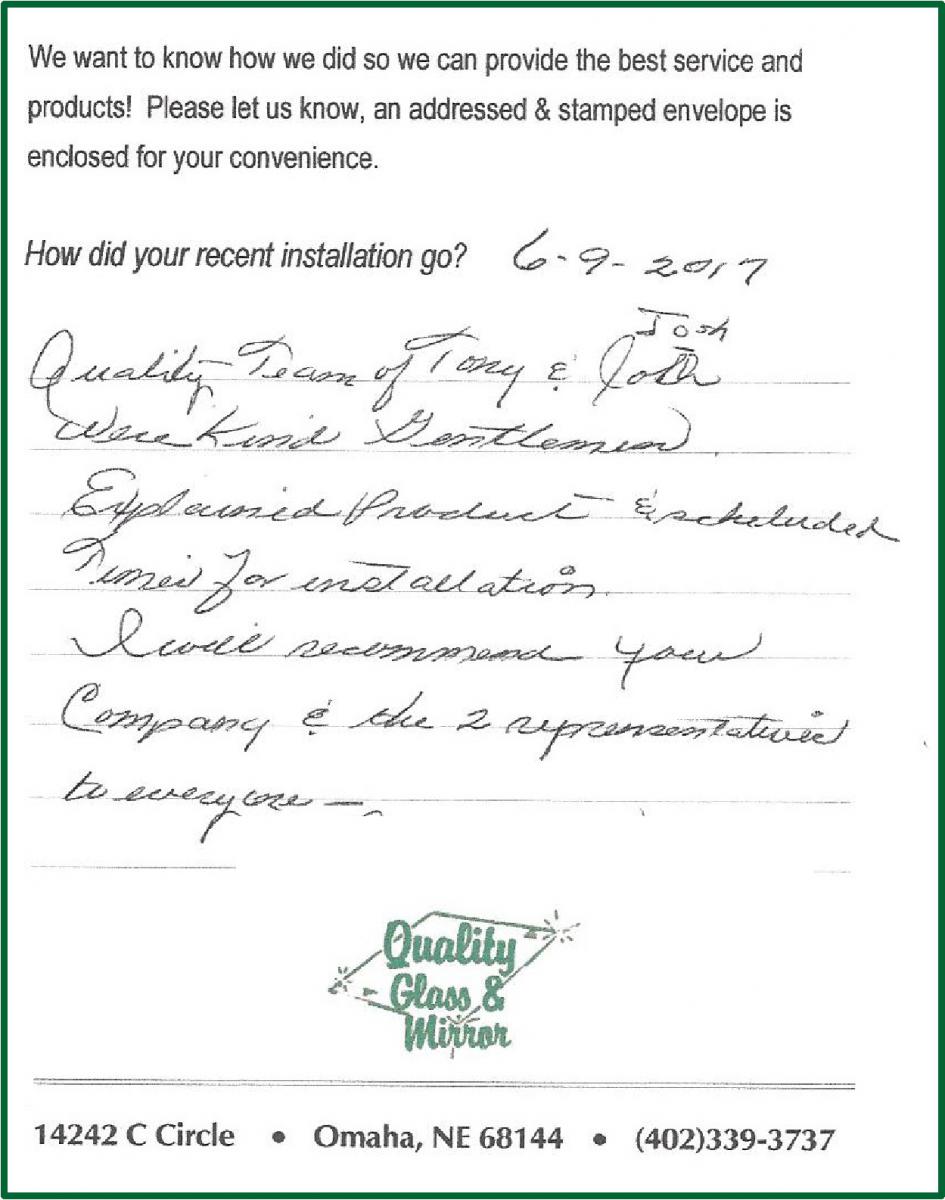 We want to know how we did so we can provide the best service and
products! Please let us know, an addressed & stamped envelope is
enclosed for your convenience.
How did your recent installation go? 6-9-2017
Josh
Quality Team of Tony & Josh
Were Kind Gentlemen
Explained Product & scheluded
Times for installation.
I will recommend your
Company & the 2 representatives
to everyone —
Quality
Glass &
Mirror
14242 C Circle • Omaha, NE 68144 • (402)339-3737